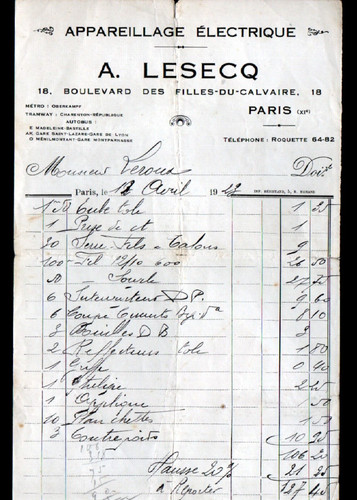 APPAREILLAGE ÉLECTRIQUE
A. LESECQ
18, BOULEVARD DES FILLES-DU-CALVAIRE, 18
PARIS (XIe)
MÉTRO : OBERKAMPF
TRAMWAY : CHARENTON-RÉPUBLIQUE
AUTOBUS :
E MADELEINE-BASTILLE
AK. GARE SAINT-LAZARE-GARE DE LYON
O MÉNILMONTANT-GARE MONTPARNASSE
TÉLÉPHONE : ROQUETTE 64-82
Monsieur Leroux Doit
Paris, le 12 Avril 1922
Tube tole 1 25
1 Prise de ct 1
20 Serre-fils à Talons 9
100 Fil 12/10 600 26 50
50 Souple 27
6 Interrupteurs D.P. 9 60
6 Coupe 8 10
3 D B 3
2 Reflecteurs tole 1 80
1 0 40
1 2 25
1 Applique 1 50
10 Planchettes 1 50
3 Contrepoids 10 25
106 20
Hausse 20% 21 25
A Reporter 127 45